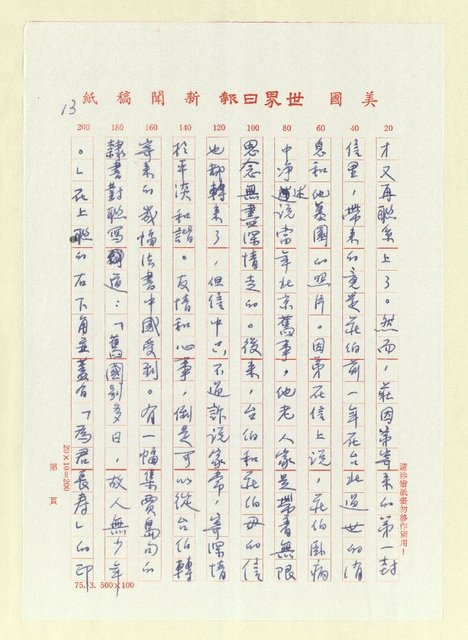 美國世界日報新聞稿紙
13
20
40
60
80
100
120
140
160
180
200
才又再聯系上了。然而,莊因第寄來的第一封
信里,帶來的竟是莊伯前一年在台北逝世的消
息和他墓園的照片。因第在信上說,莊伯臥病
中净述说當年北京舊事,他老人家是帶着無限
思念無盡深情走的。後來,台伯和莊伯母的信
也都轉來了,但信中只不過訴说家常,寄深情
於平淡和諧。友情和心事,倒是可以從台伯轉
寄來的幾幅法書中國受到。有一幅集賈島句的
隸書對聯寫道:「舊國別多日,故人無少年
。」在上聯的右下角並蓋有「為君長壽」的印
請珍惜紙張勿移作別用!
20×10=200
第 頁
75.3. 500×100